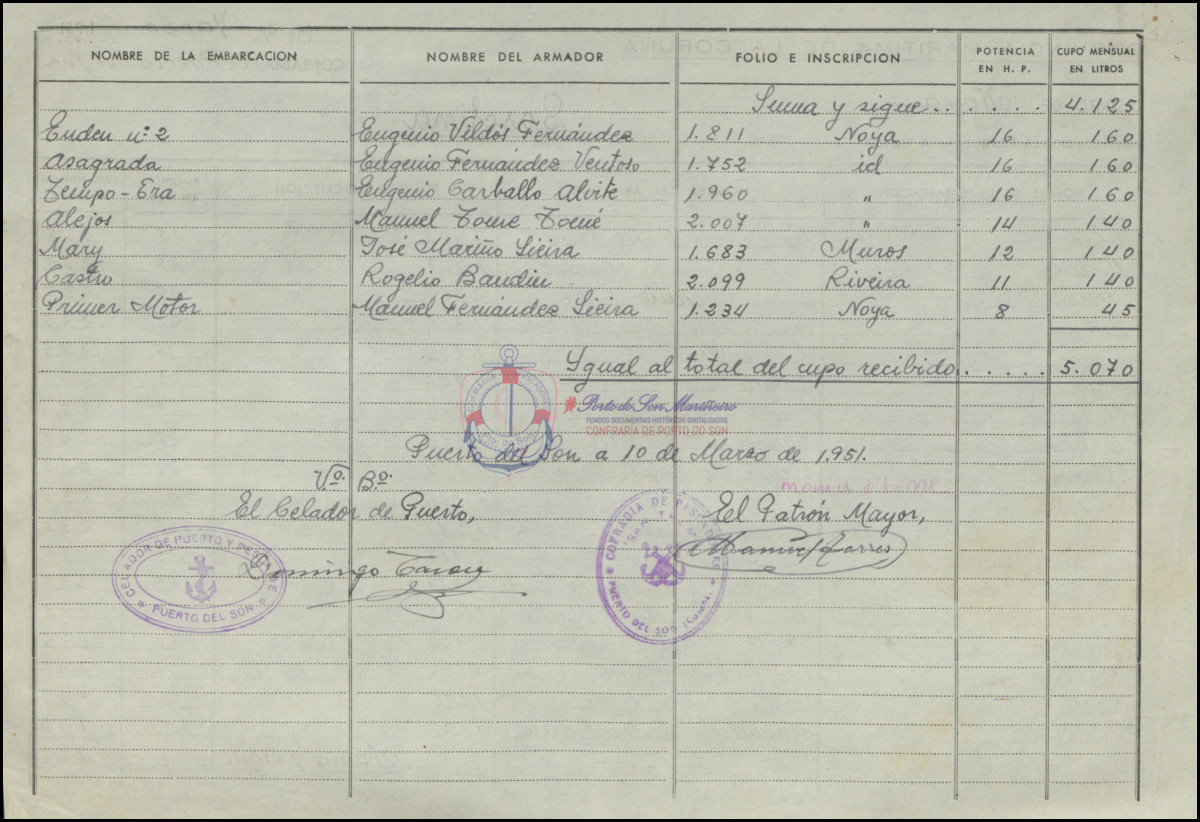 NOMBRE DE LA EMBARCACION NOMBRE DEL ARMADOR FOLIO E INSCRIPCION POTENCIA EN H. P. CUPO MENSUAL EN LITROS
Suma y sigue . . . . . . 4.125
Enden n.º 2 Eugenio Vildós Fernández 1.811 Noya 16 160
Asagrada Eugenio Fernández Ventoso 1.752 id 16 160
Tempo - Era Eugenio Carballo Alvite 1.960 " 16 160
Alejos Manuel Tomé Tomé 2.007 " 14 140
Mary José Mariño Sieira 1.683 Muros 12 140
Castro Rogelio Baudin 2.099 Riveira 11 140
Primer Motor Manuel Fernández Sieira 1.234 Noya 8 45
Ygual al total del cupo recibido . . . . . 5.070
COFRADIA PESCADORES
Pto. do Son
#Porto do Son Mariñeiro
FONDOS DOCUMENTAIS HISTÓRICOS DIXITALIZADOS
CONFRARÍA DE PORTO DO SON
Puerto del Son a 10 de Marzo de 1.951.
V.º B.º
El Celador de Puerto, El Patrón Mayor,
CELADOR DE PUERTO Y PESCA DE
PUERTO DEL SON
Domingo
COFRADIA DE PESCADORES
PUERTO DEL SON (Coruña)
Manuel Torres